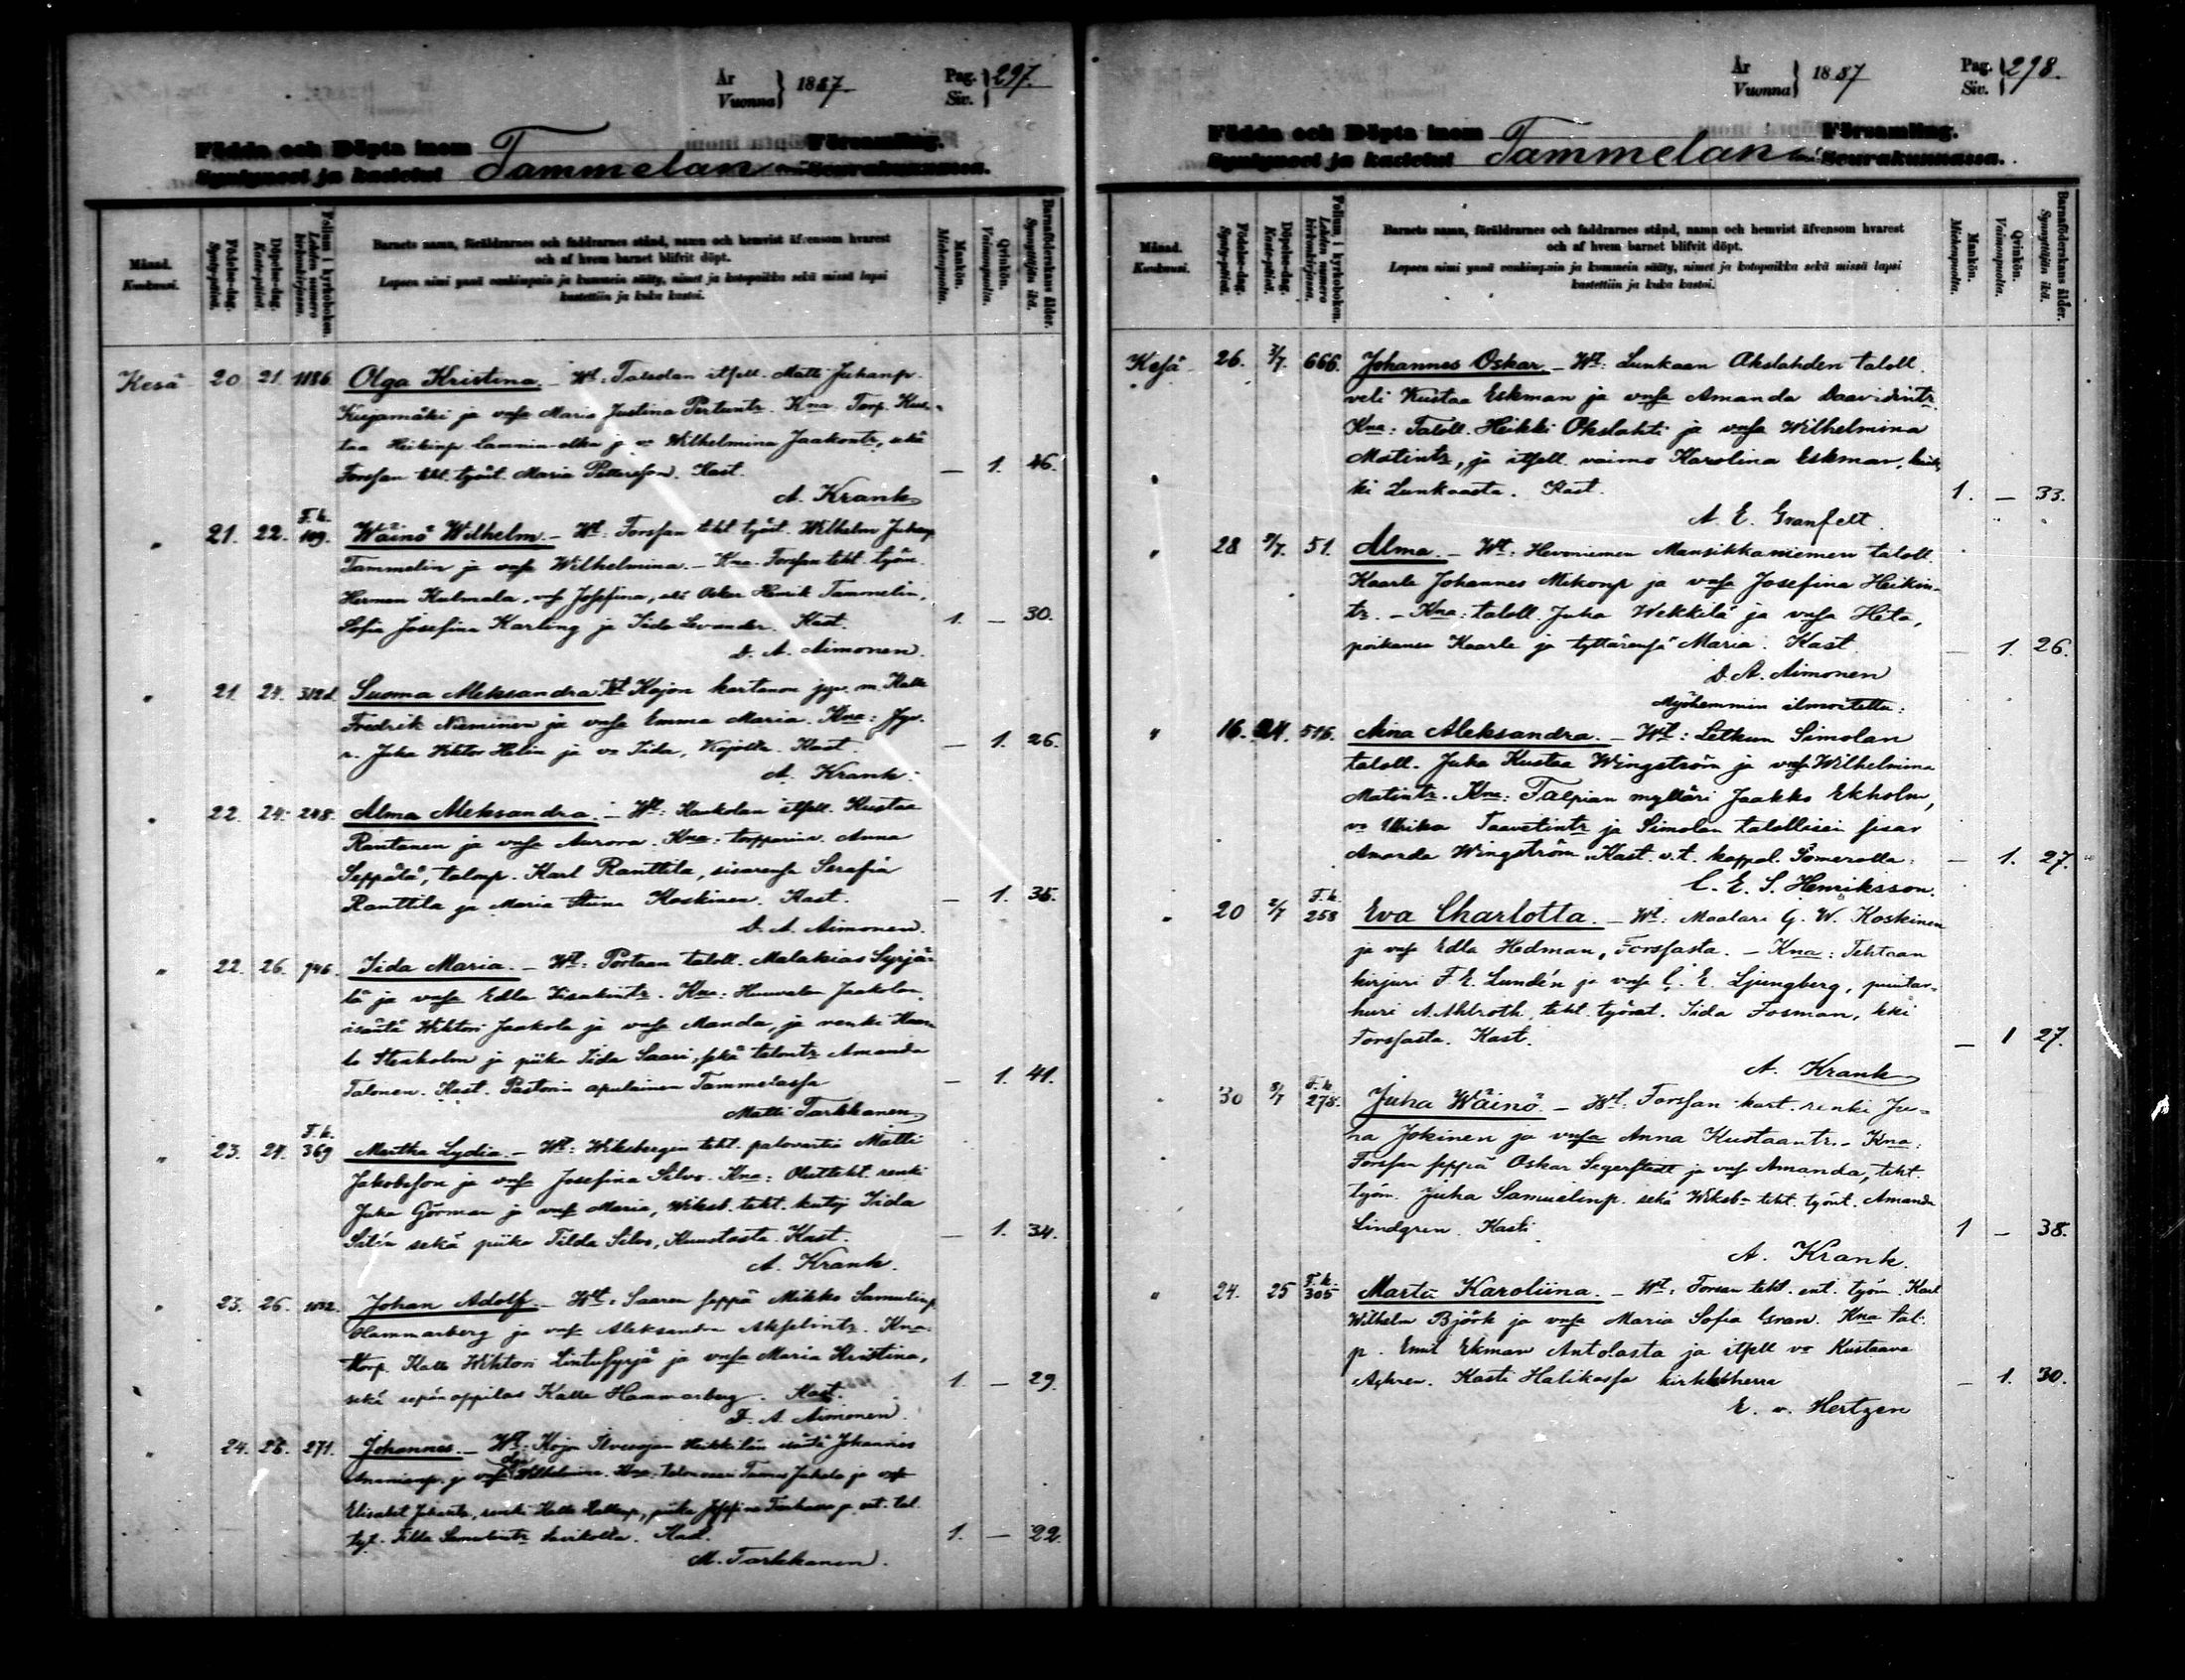 År
Vuonna } 1887. Pag. Siv. } 297.
Födda och Döpta inom Församling.
Syntyneet ja kastetut Tammelan Seurakunnassa.
Månad. Kuukausi.
Födelse-dag. Synty-päivä.
Döpelse-dag. Kaste-päivä.
Folium i kyrkoboken. Lehden numero kirkonkirjassa.
Barnets namn, föräldrarnes och faddrarnes stånd, namn och hemvist äfvensom hvarest
och af hvem barnet blifvit döpt.
Lapsen nimi ynnä vanhimpain ja kummein sääty, nimet ja kotopaikka sekä missä lapsi
kastettiin ja kuka kastoi.
Mankön. Miehenpuolta.
Qvinkön. Vaimonpuolta.
Barnaföderskans ålder. Synnyttäjän ikä.
Kesä 20 21. 1186. Olga Kristina. – Wt: Talsolan itsell. Matti Juhanp.
Kujamäki ja vnsa Maria Justina Pertuntr. Kna. Torp. Kus-
taa Heikinp. Lammin-olka ja vo Wilhelmina Jaakontr, sekä
Forssan teht. työnt. Maria Pettersson. Kast. — 1. 46.
A. Krank
" 21. 22. F. k. 109. Wäinö Wilhelm. – Wt: Forssan teht. työnt. Wilhelm Juhanp
Tammelin ja vnsa Wilhelmina. – Kna. Forssan teht. työm.
Herman Kulmala, vnsa Josefina, Oskar Henrik Tammelin,
Sofia Josefina Karling ja Iida Levander. Kast. 1. — 30.
D. A. Aimonen.
" 21. 24. 312d. Suoma Aleksandra. Wt Kojon kartanon m. Kalle
Fredrik Nieminen ja vnsa Emma Maria. Kna:
r. Juha Viktor Helin ja vo Iida, Kojolta. Kast. — 1. 26.
A. Krank.
" 22. 24. 248. Alma Aleksandra. – Wt: Kaukolan itsell. Kustaa
Rantanen ja vnsa Aurora. Kna: torpparinv. Anna
Seppälä, talonp. Karl Ranttila, sisarensa Serafia
Ranttila ja Maria Stiina Koskinen. Kast. — 1. 35.
D. A. Aimonen.
" 22. 26. 746. Iida Maria. – Wt: Portaan taloll. Malakias Syrjä-
lä ja vnsa Edla Iisakintr. Kna: Hunvalan Jaakolan
isäntä Wiktori Jaakola ja vnsa Manda, ja renki Kaar-
lo Stenholm ja piika Iida Saari, sekä talontr Amanda
Talonen. Kast. Pastorin apulainen Tammelassa — 1. 41.
Matti Tarkkanen.
" 23. 24. F. k. 369 Martha Lydia. – Wt: Wiksbergin teht. palovartia Matti
Jakobsson ja vnsa Josefina Silvo. Kna: Oluttieht. renki
Juha Görman ja vnsa Maria, Wiksb. teht. kutoj Iida
Silén sekä piika Tilda Silvo, Kuustosta. Kast. — 1. 34.
A. Krank.
" 23. 26. 1032. Johan Adolf. – Wt: Saaren seppä Mikko Samulinp
Hammarberg ja vnsa Aleksandra Akselintr. Kna.
torp. Kalle Wiktori Lintusyrjä ja vnsa Maria Kristina,
sekä sepänoppilas Kalle Hammarberg. Kast. 1. — 29.
D. A. Aimonen.
" 24. 26. 271. Johannes. – Wt: Kojon Heikkilän isäntä Johannes
Ananianp. ja vnsa Olga Wilhelmina. Kna: Jahala ja vnsa
Elisabet renki Kalle piika Josefina ja
tyt. Tilda Samulintr Savikolta. Kast. 1. — 22.
M. Tarkkanen.
År
Vuonna } 1887 Pag. Siv. } 298.
Födda och Döpta inom Församling.
Syntyneet ja kastetut Tammelan Seurakunnassa.
Månad. Kuukausi.
Födelse-dag. Synty-päivä.
Döpelse-dag. Kaste-päivä.
Folium i kyrkoboken. Lehden numero kirkonkirjassa.
Barnets namn, föräldrarnes och faddrarnes stånd, namn och hemvist äfvensom hvarest
och af hvem barnet blifvit döpt.
Lapsen nimi ynnä vanhimpain ja kummein sääty, nimet ja kotopaikka sekä missä lapsi
kastettiin ja kuka kastoi.
Mankön. Miehenpuolta.
Qvinkön. Vaimonpuolta.
Barnaföderskans ålder. Synnyttäjän ikä.
Kesä 26. 3/7. 666. Johannes Oskar – Wt: Lunkaan Okslahden taloll.
veli Kustaa Eskman ja vnsa Amanda Daavidintr.
Kna: Taloll. Heikki Okslahti ja vnsa Wilhelmina
Matintr, ja itsell. vaimo Karolina Eskman, kaik-
ki Lunkaasta. Kast. 1. — 33.
A. E. Granfelt.
" 28 9/7. 51. Alma. – Wt: Hevoniemen Mansikkaniemen taloll.
Kaarle Johannes Mikonp ja vnsa Josefina Heikin-
tr. – Kna: taloll. Juha Wekkilä ja vnsa Heta,
poikansa Kaarle ja tyttärensä Maria. Kast. — 1. 26.
D. A. Aimonen
Myöhemmin ilmoitettu:
" 16. 24. 516. Aina Aleksandra. – Wt: Letkun Simolan
taloll. Juha Kustaa Wingström ja vnsa Wilhelmina
Matintr. Kna: Talpian mylläri Jaakko Ekholm,
vo Ulrika Taavetintr ja Simolan talollisen sisar
Amanda Wingström. Kast. v.t. kappal. Somerolla: — 1. 27.
C. E. S. Henriksson.
" 20 2/7 F. k. 258 Eva Charlotta. – Wt: Maalari G. W. Koskinen
ja vnsa Edla Hedman, Forssasta. – Kna: Tehtaan
kirjuri F. E. Lundén ja vnsa C. E. Ljungberg, puutar-
huri A. Ahlroth, teht. työnt. Iida Fosman, kki
Forssasta. Kast. — 1 27.
A. Krank
" 30 3/7 F. k. 278. Juha Wäinö. – Wt: Forssan kart. renki Ju-
ha Jokinen ja vnsa Anna Kustaantr. – Kna:
Forssan seppä Oskar Segerstedt ja vnsa Amanda, teht.
työm. Juha Samuelinp. sekä Wiksb. teht. työnt. Amanda
Lindgren. Kasti 1 — 38.
A. Krank.
" 24. 25 F. k. 305 Marta Karoliina. – Wt: Forssan teht. ent. työm. Karl
Wilhelm Björk ja vnsa Maria Sofia Gran. Kna tal.
p. Emil Ekman Antolasta ja itsell vo Kustaava
Kasti Halikossa kirkkoherra — 1. 30.
E. v. Hertzen